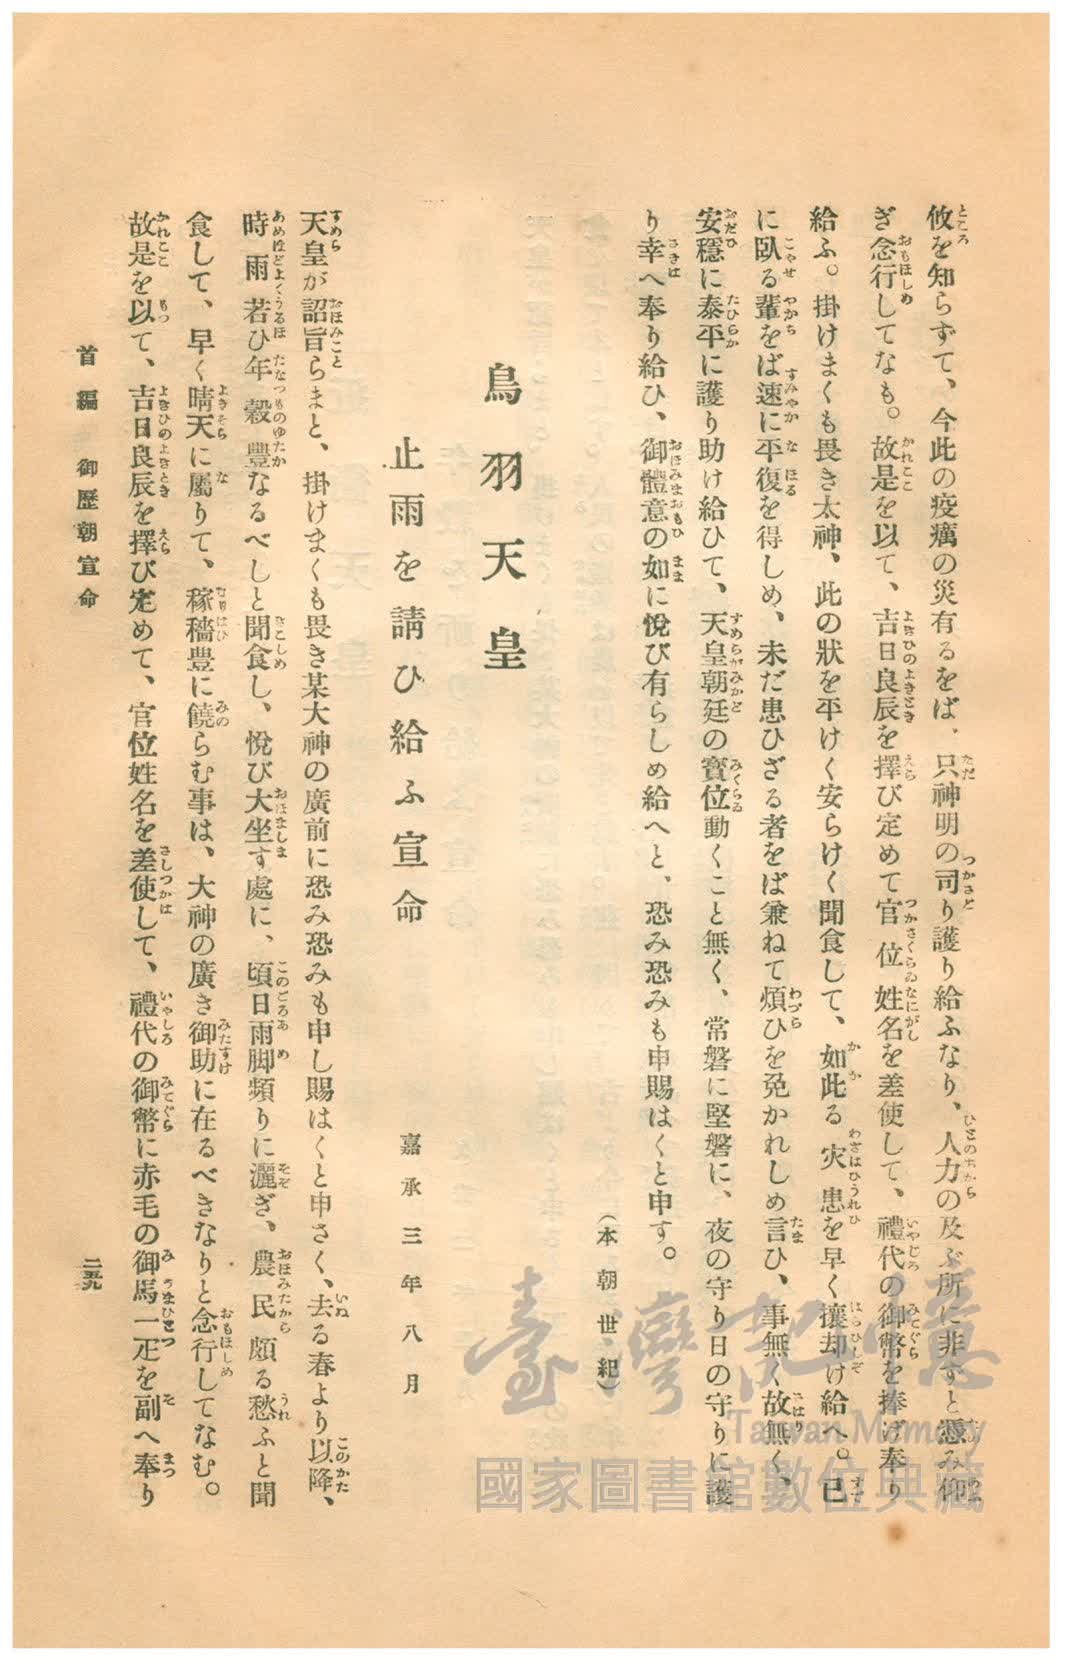 攸を知らずて、今此の疫癘の災有るをば、只神明の司り護り給ふなり、人力の及ぶ所に非ずと憑み仰
ぎ念行してなも。故是を以て、吉日良辰を擇び定めて官位姓名を差使して、禮代の御幣を捧げ奉り
給ふ。掛けまくも畏き太神、此の狀を平けく安らけく聞食して、如此る灾患を早く攘却け給へ。已
に臥る輩をば速に平復を得しめ、未だ患ひざる者をば兼ねて煩ひを免かれしめ言ひ、事無く故無く、
安穩に泰平に護り助け給ひて、天皇朝廷の寳位動くこと無く、常磐に堅磐に、夜の守り日の守りに護
り幸へ奉り給ひ、御體意の如に悅び有らしめ給へと、恐み恐みも申賜はくと申す。
（本朝世紀）
鳥羽天皇
止雨を請ひ給ふ宣命
嘉承三年八月
天皇が詔旨らまと、掛けまくも畏き某大神の廣前に恐み恐みも申し賜はくと申さく、去る春より以降、
時雨若ひ年穀豐なるべしと聞食し、悅び大坐す處に、頃日雨脚頻りに灑ぎ、農民頗る愁ふと聞
食して、早く晴天に屬りて、稼穡豐に饒らむ事は、大神の廣き御助に在るべきなりと念行してなむ。
故是を以て、吉日良辰を擇び定めて、官位姓名を差使して、禮代の御幣に赤毛の御馬一疋を副へ奉り
首編 御歷朝宣命
二五九
臺灣記憶
Taiwan Memory
國家圖書館數位典藏